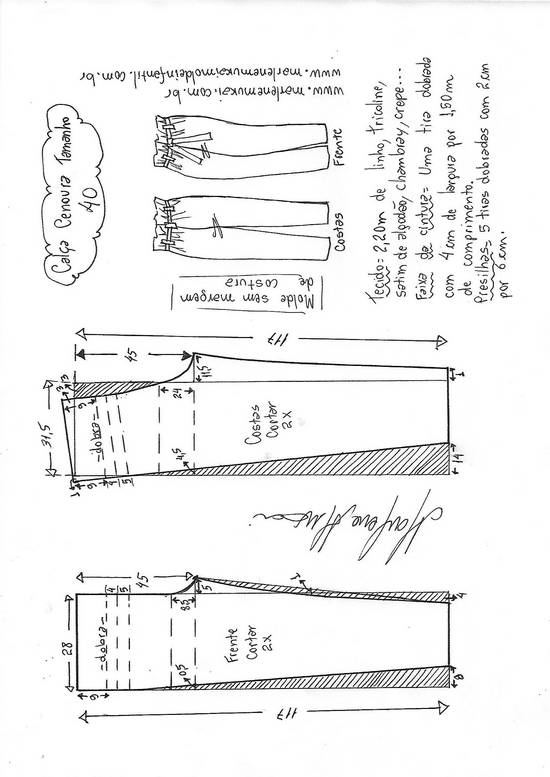 Calça Cenoura Tamanho
40
www.marlenemukai.com.br
www.marlenemukaimoldeinfantil.com.br
Frente
Costas
Molde sem margem
de costura
Tecido= 2,20m de linho, tricoline,
satim de algodão, chambray, crepe...
Faixa de cintura= Uma tira dobrada
com 4cm de largura por 1,50m
de comprimento.
Presilhas= 5 tiras dobradas com 2cm
por 6cm.
117
45
31,5
3
3
1
6
-dobra-
24
11,5
Costas
Cortar
2x
4,5
1
6
4
5
1
14
Marlene Mukai
45
28
4
5
-dobra-
8,5
5
1
4
Frente
Cortar
2x
0,5
6
8
117